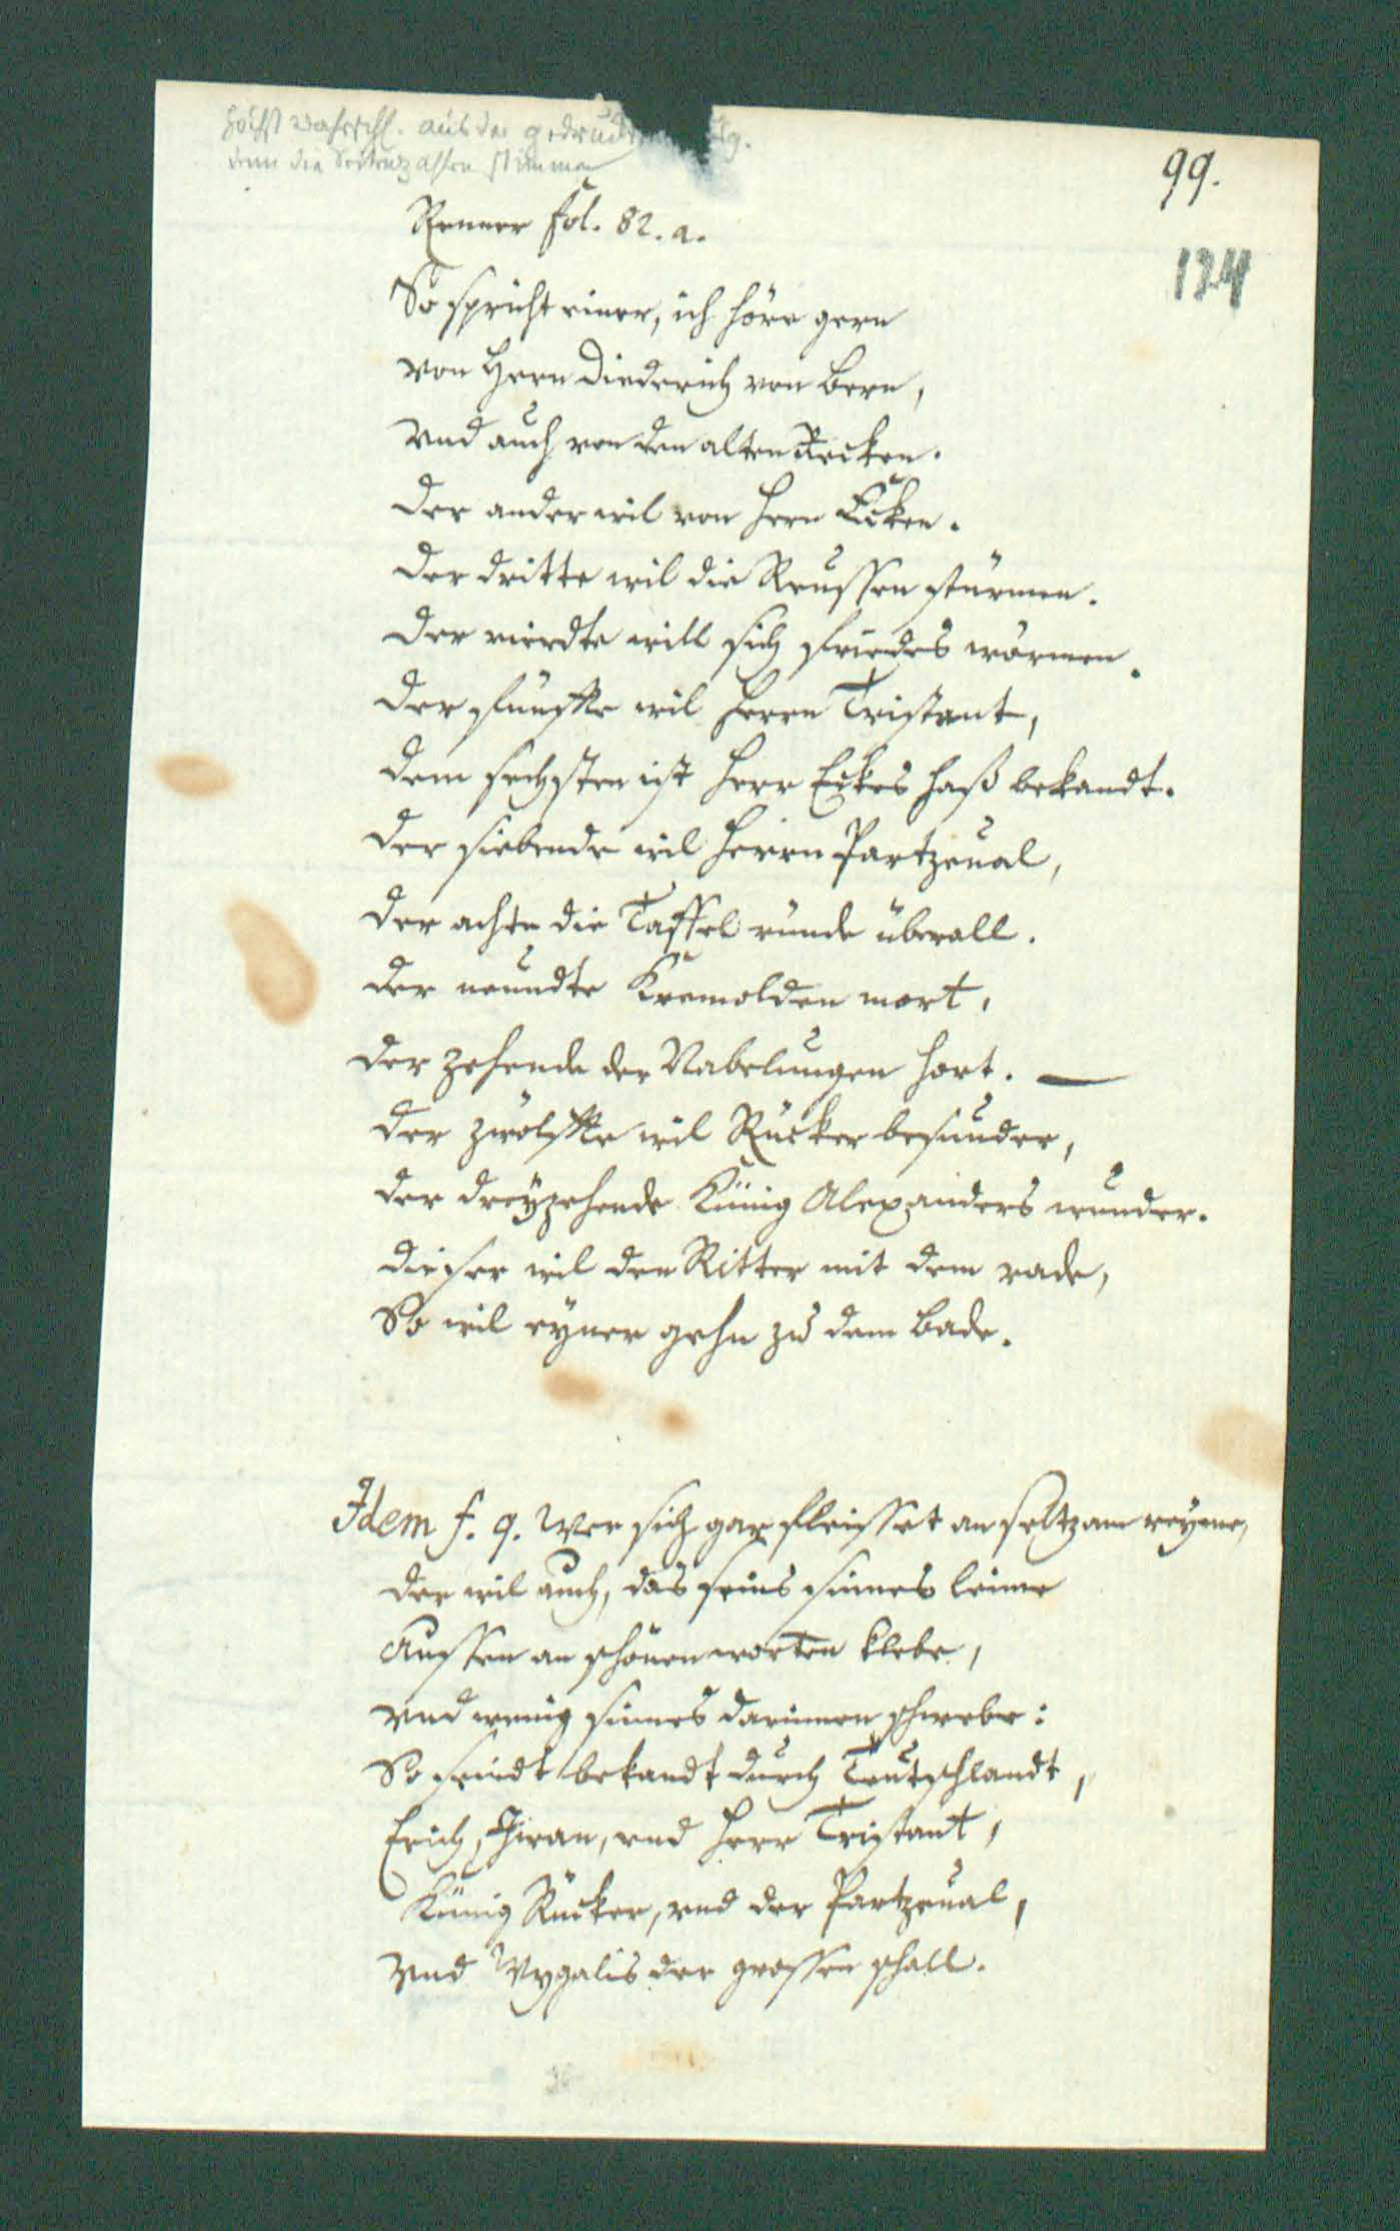 höchst wahrschl. aus der
denn die Seitenzahlen stimmen
99.
124
Renner fol. 82. a.
So spricht einer, ich höre gern
von Hern Diederich von Bern,
vnd auch von den alten Recken.
Der ander wil von Hern Ecken.
Der dritte wil die Reussen stürmen.
Der vierdte will sich friedes wörmen.
Der funffte wil Herrn Tristant,
dem sechsten ist Herr Eckes haß bekandt.
Der siebende wil Herrn Partzeual,
der achte die Taffel runde überall.
Der neundte Kremolden mort,
der zehende der Nabelungen hort. —
Der zwölffte wil Rücker besunder,
der dreyzehende Künig Alexanders wunder.
Dieser wil den Ritter mit dem rade,
So wil eyner gehn zu dem bade.
Idem f. 9. Wer sich gar fleisset an seltzam reyme,
der wil auch, das seins sinnes leime
Aussen an schönen worten klebe,
vnd wenig sinnes darinnen schwebe:
So seindt bekandt durch Teutschlandt,
Erich, Iwan, vnd Herr Tristant,
Künig Rucker, vnd der Partzeual,
vnd Wygalis der grossen schall.